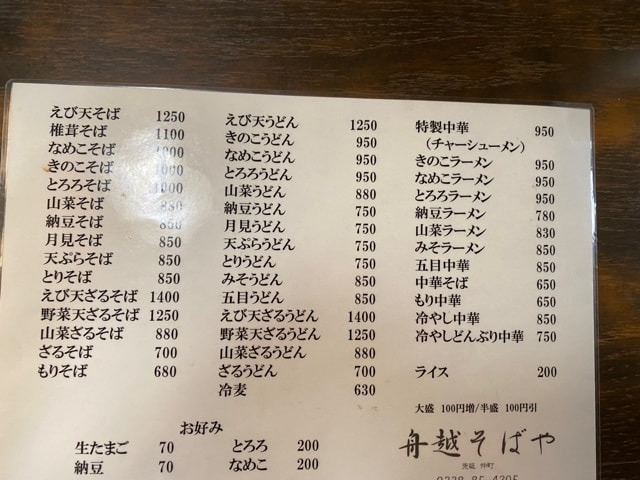 えび天そば 1250
椎茸そば 1100
なめこそば 1000
きのこそば 1000
とろろそば 1000
山菜そば 880
納豆そば 850
月見そば 850
天ぷらそば 850
とりそば 850
えび天ざるそば 1400
野菜天ざるそば 1250
山菜ざるそば 880
ざるそば 700
もりそば 680
えび天うどん 1250
きのこうどん 950
なめこうどん 950
とろろうどん 950
山菜うどん 880
納豆うどん 750
月見うどん 750
天ぷらうどん 750
とりうどん 750
みそうどん 850
五目うどん 850
えび天ざるうどん 1400
野菜天ざるうどん 1250
山菜ざるうどん 880
ざるうどん 700
冷麦 630
特製中華 950
(チャーシューメン)
きのこラーメン 950
なめこラーメン 950
とろろラーメン 950
納豆ラーメン 780
山菜ラーメン 830
みそラーメン 850
五目中華 850
中華そば 650
もり中華 650
冷やし中華 850
冷やしどんぶり中華 750
ライス 200
大盛 100円増/半盛 100円引
お好み
生たまご 70
納豆 70
とろろ 200
なめこ 200
舟越そばや
仲町